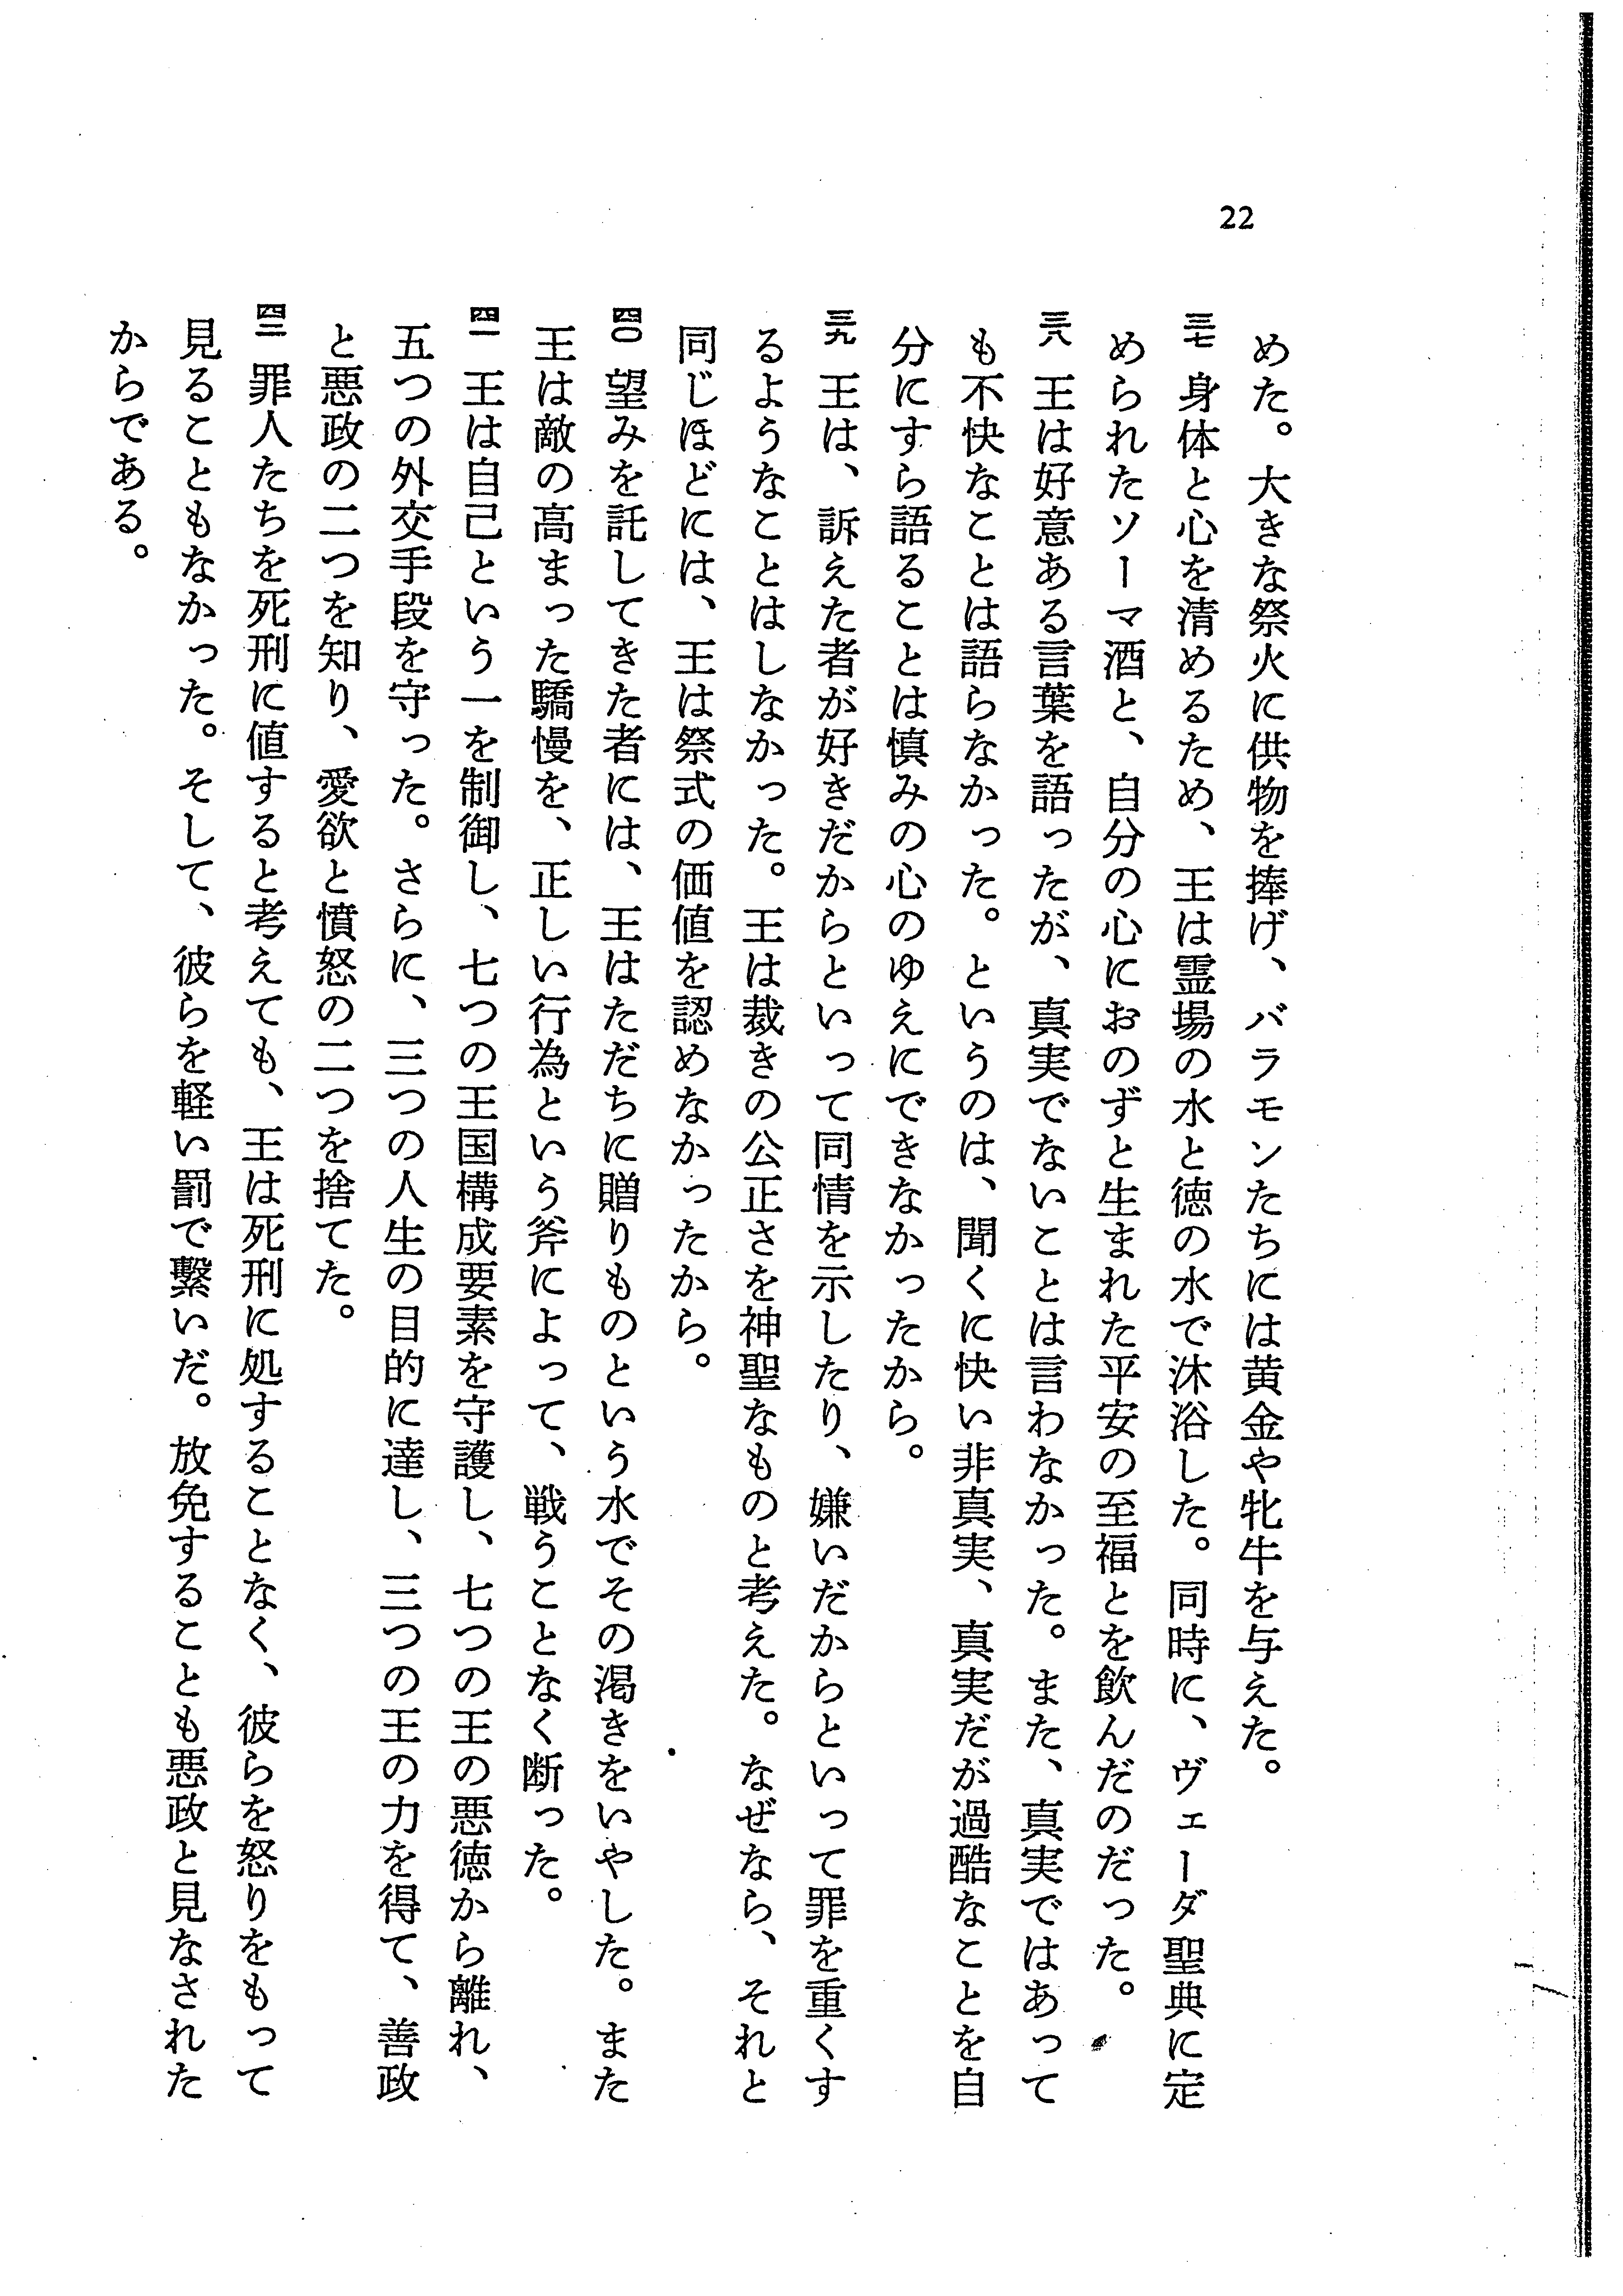 22
めた。大きな祭火に供物を捧げ、バラモンたちには黄金や牝牛を与えた。
三七 身体と心を清めるため、王は霊場の水と徳の水で沐浴した。同時に、ヴェーダ聖典に定
められたソーマ酒と、自分の心におのずと生まれた平安の至福とを飲んだのだった。
三八 王は好意ある言葉を語ったが、真実でないことは言わなかった。また、真実ではあって
も不快なことは語らなかった。というのは、聞くに快い非真実、真実だが過酷なことを自
分にすら語ることは慎みの心のゆえにできなかったから。
三九 王は、訴えた者が好きだからといって同情を示したり、嫌いだからといって罪を重くす
るようなことはしなかった。王は裁きの公正さを神聖なものと考えた。なぜなら、それと
同じほどには、王は祭式の価値を認めなかったから。
四〇 望みを託してきた者には、王はただちに贈りものという水でその渇きをいやした。また
王は敵の高まった驕慢を、正しい行為という斧によって、戦うことなく断った。
四一 王は自己という一を制御し、七つの王国構成要素を守護し、七つの王の悪徳から離れ、
五つの外交手段を守った。さらに、三つの人生の目的に達し、三つの王の力を得て、善政
と悪政の二つを知り、愛欲と憤怒の二つを捨てた。
四二 罪人たちを死刑に値すると考えても、王は死刑に処することなく、彼らを怒りをもって
見ることもなかった。そして、彼らを軽い罰で繫いだ。放免することも悪政と見なされた
からである。